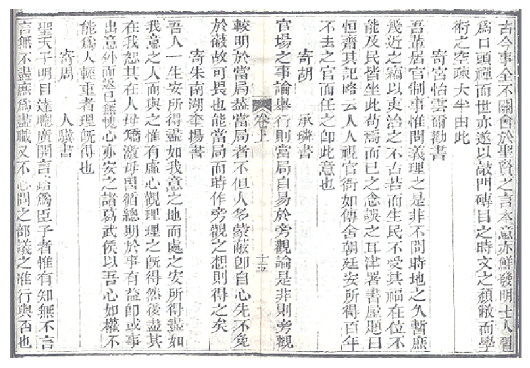 古今事全不關會於聖賢之言本意亦鮮發明士人習
為口頭禪而世亦遂以敲門磚目之時文之頹敝而學
術之空疎大半由此
寄宮怡雲爾勸書
吾輩居官制事惟問義理之是非不問時地之久暫庶
幾近之竊以吏治之不古若而生民不受其福在位不
能及民皆坐此苟為而已之念誤之耳津署書屋題曰
恒齋其記略云人人視官衙如傳舍朝廷安所得百年
不去之官而任之卽此意也
寄胡 承璘書
官場之事論舉行則當局自易於旁觀論是非則旁觀
卷上
十五
較明於當局蓋當局者不但人多蒙蔽卽自心先不免
於蔽故可畏也能當局而時作旁觀之想則得之矣
寄朱南湖奎揚書
吾人一生安所得盡如我意之地而處之安所得盡如
我意之人而與之惟有虛心觀理理之旣得然後盡其
在我恕其在人毋矯激毋因循總明於事有益卽或事
出意外而返已無愧心亦安之諸葛武侯以吾心如權不
能為人輕重者理旣得也
寄周 人驥書
聖天子明目達聰廣開言路為臣子者惟有知無不言
言無不盡庶為盡職又不必問之部議之准行與否也